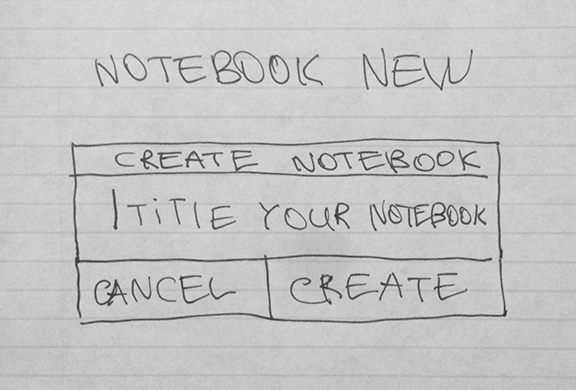 NOTEBOOK NEW
CREATE NOTEBOOK
TITLE YOUR NOTEBOOK
CANCEL
CREATE